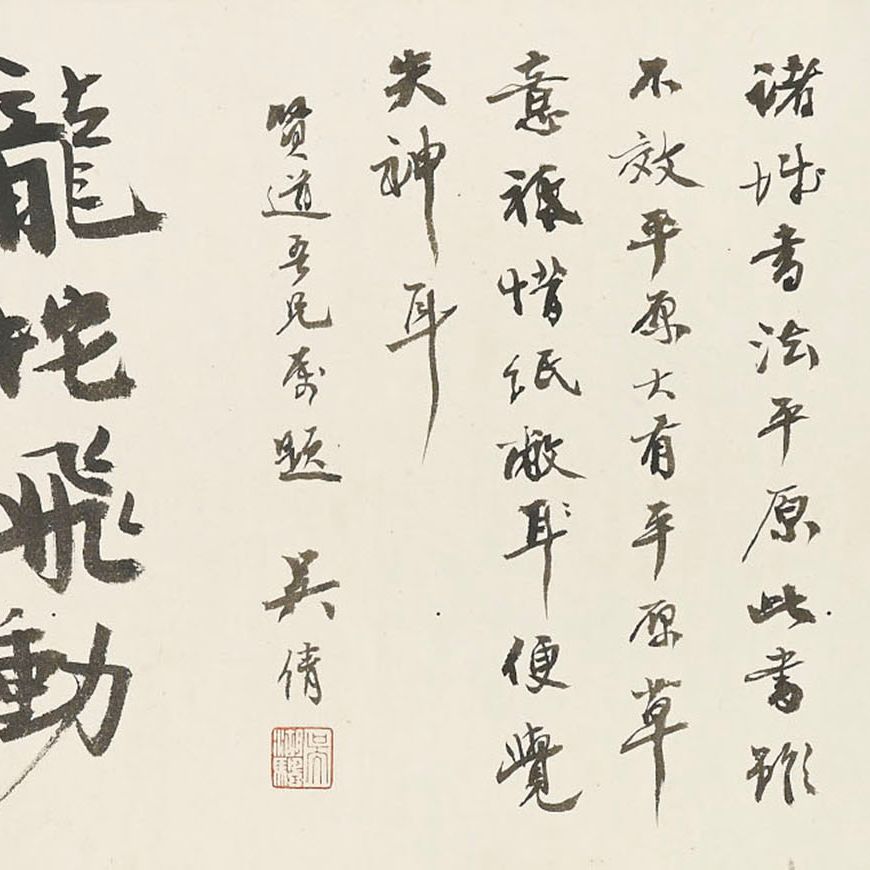 諸城書法平原此書雖
不效平原大有平原草
意祗惜紙敝耳便覺
失神耳
賢道吾兄屬題 吳倩
龍蛇飛動